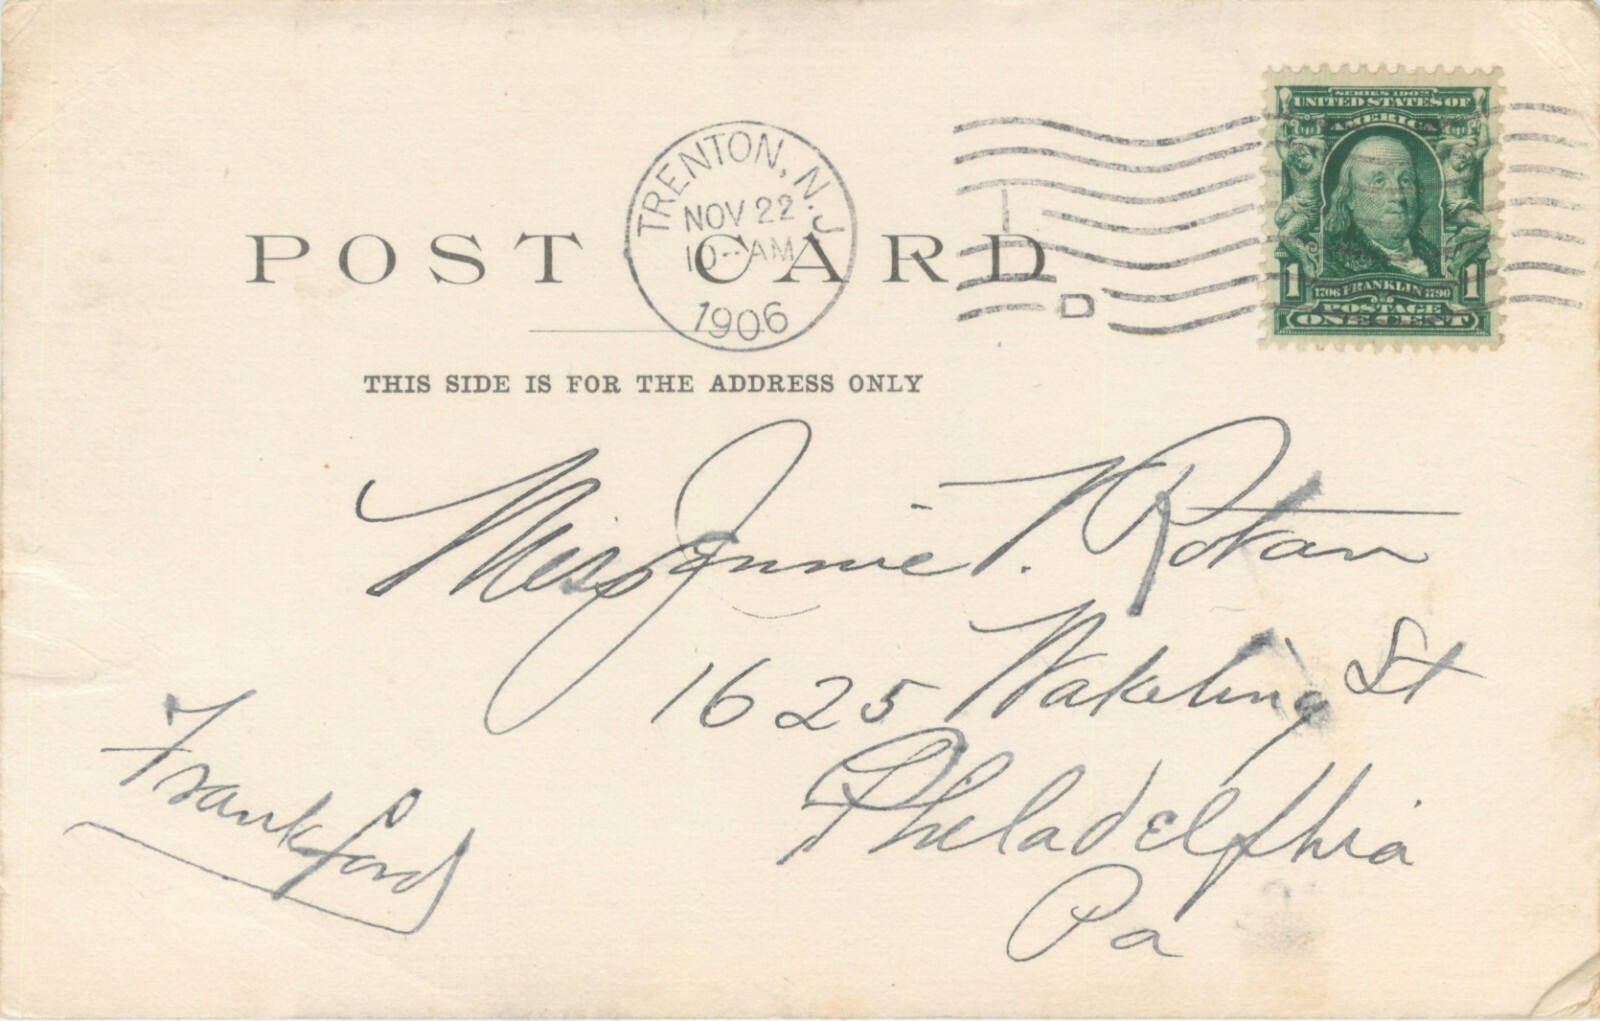 SERIES 1902
UNITED STATES OF
AMERICA
1 1
1706 FRANKLIN 1790
POSTAGE
ONE CENT
TRENTON, N.J.
NOV 22
10-AM
1906
D
POST CARD
THIS SIDE IS FOR THE ADDRESS ONLY
Miss Jennie T. Rotan
1625 Wakeling St
Philadelphia
Pa
Frankford